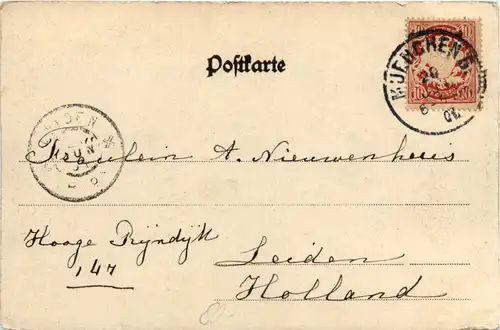 Postkarte
MUENCHEN
10 10
LEIDEN
Fräulein A. Nieuwenhuis
Hooge Rijndijk
147
Leiden
Holland